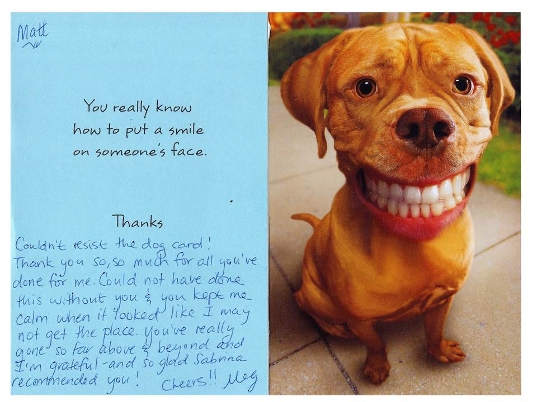 Matt
You really know
how to put a smile
on someone's face.
Thanks
Couldn't resist the dog card!
Thank you so, so much for all you've
done for me. Could not have done
this without you & you kept me
calm when it looked like I may
not get the place. You've really
gone so far above & beyond and
I'm grateful - and so glad Sabrina
recommended you!
Cheers!! Meg